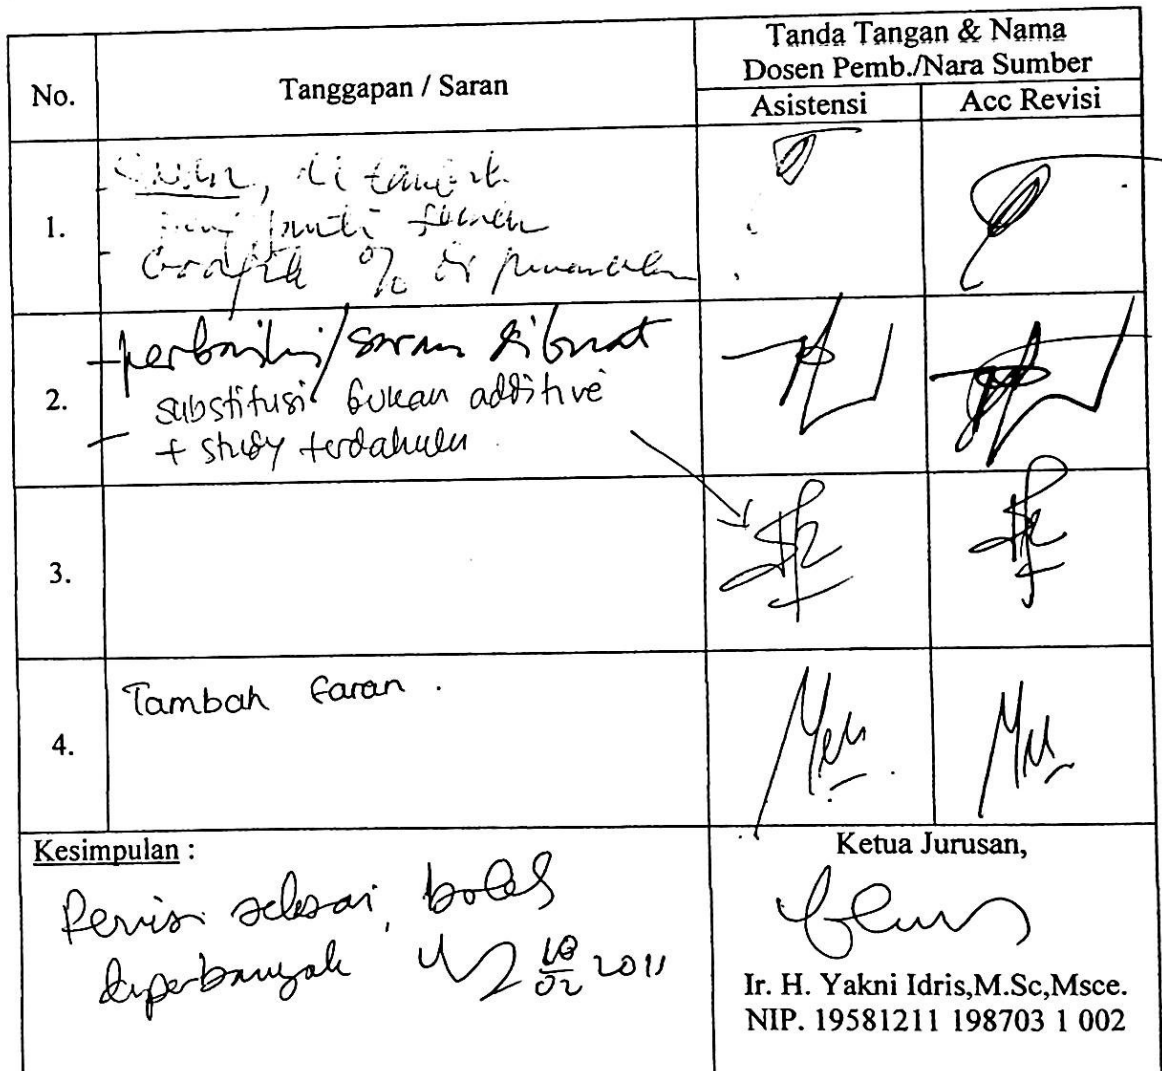 No.
Tanggapan / Saran
Tanda Tangan & Nama
Dosen Pemb./Nara Sumber
Asistensi
Acc Revisi
1.
Saran, di
Grafik % di
2.
- perbaiki/saran dibuat
substitusi bukan additive
- + study terdahulu
3.
4.
Tambah saran.
Kesimpulan :
Revisi selesai, boleh
diperbanyak 18/02 2011
Ketua Jurusan,
Ir. H. Yakni Idris,M.Sc,Msce.
NIP. 19581211 198703 1 002